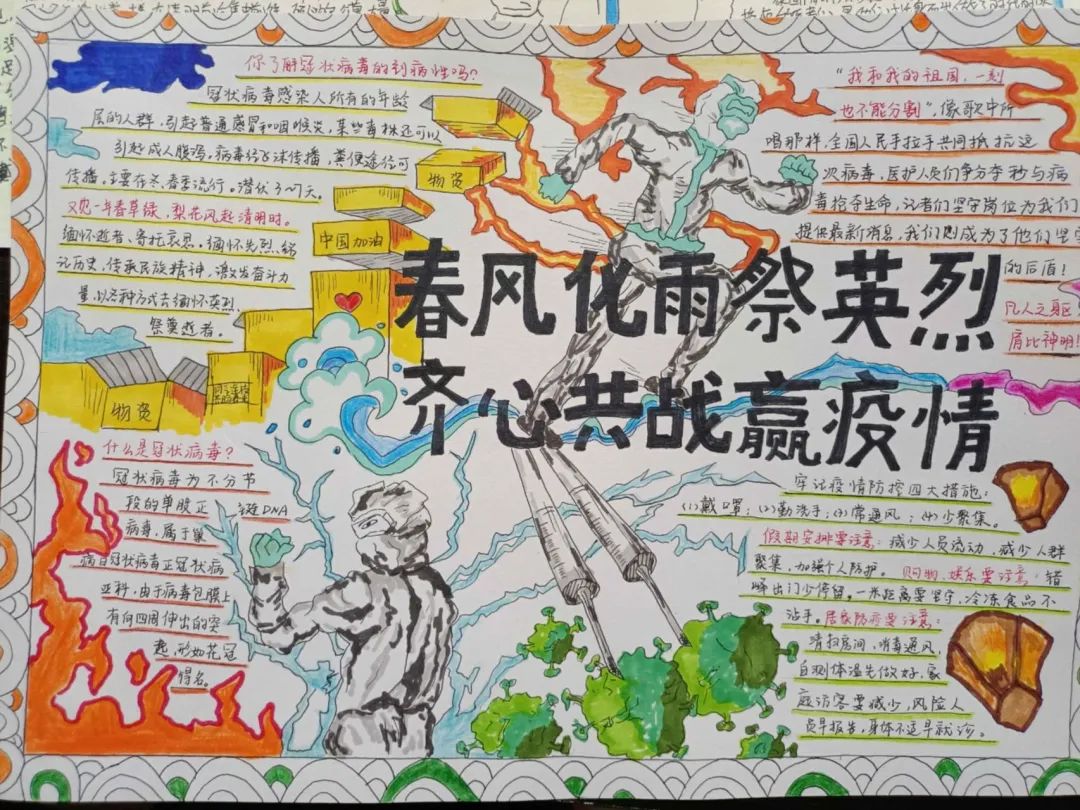 你了解冠状病毒的致病性吗?
冠状病毒感染人所有的年龄
层的人群,引起普通感冒和咽喉炎,某些毒株还可以
引起成人腹泻,病毒经飞沫传播,粪便途径可
传播。主要在冬、春季流行。潜伏3~7天。
又见一年春草绿,梨花风起清明时。
缅怀逝者、寄托哀思,缅怀先烈、铭
记历史,传承民族精神,激发奋斗力
量,以各种方式去缅怀英烈、
祭奠逝者。
物资
中国加油
物资
“我和我的祖国,一刻
也不能分割”,像歌中所
唱那样,全国人民手拉手共同抵抗这
次病毒,医护人员们争分夺秒与病
毒抢夺生命,记者们坚守岗位为我们
提供最新消息,我们则成为了他们坚实
的后盾!
凡人之躯
肩比神明!
春风化雨祭英烈
齐心共战赢疫情
什么是冠状病毒?
冠状病毒为不分节
段的单股正链DNA
病毒,属于巢
病目冠状病毒正冠状病
亚科,由于病毒包膜上
有向四周伸出的突
起,形如花冠
得名。
牢记疫情防控四大措施:
(1)戴口罩;(2)勤洗手;(3)常通风;(4)少聚集。
假期安排要注意:减少人员流动,减少人群
聚集,加强个人防护。购物、娱乐要注意:错
峰出门少停留。一米距离要坚守,冷冻食品不
沾手。居家防疫要注意:
清扫房间,消毒通风,
自测体温先做好,家
庭访客要减少,风险人
员早报告,身体不适早就诊。